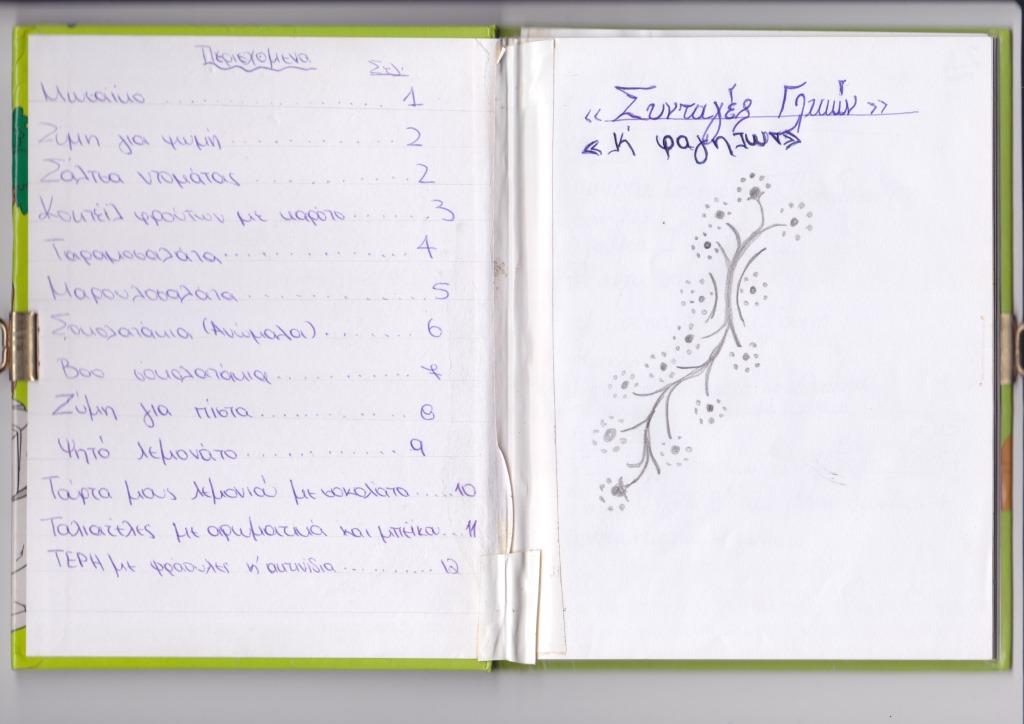 Περιεχομενα
Σελ.
Μωσαϊκο 1
Ζύμη για ψωμή 2
Σάλτσα ντομάτας 2
Κοκτέϊλ φρούτων με καρότο 3
Ταραμοσαλάτα 4
Μαρουλοσαλάτα 5
Σοκολατάκια (Ανώμαλα) 6
σοκολατάκια 7
Ζύμη για πίστα 8
Ψητό λεμονάτο 9
Τάρτα μους λεμονιού με σοκολάτα 10
Ταλιατέλες με αρωματικά και μπέϊκον 11
ΤΕΡΗ με φράουλες κ' ακτινίδια 12
«Συνταγές Γλυκών»
«κ' φαγητων»